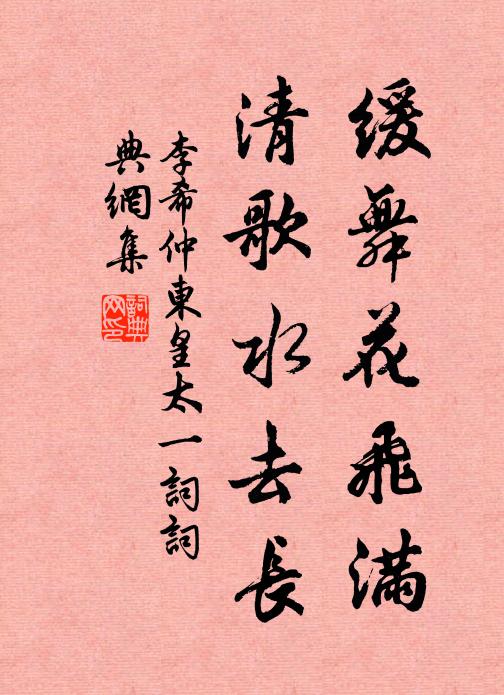 緩舞花飛滿
清歌水去長
李希仲東皇太一詞詞
典網集
詞典網印